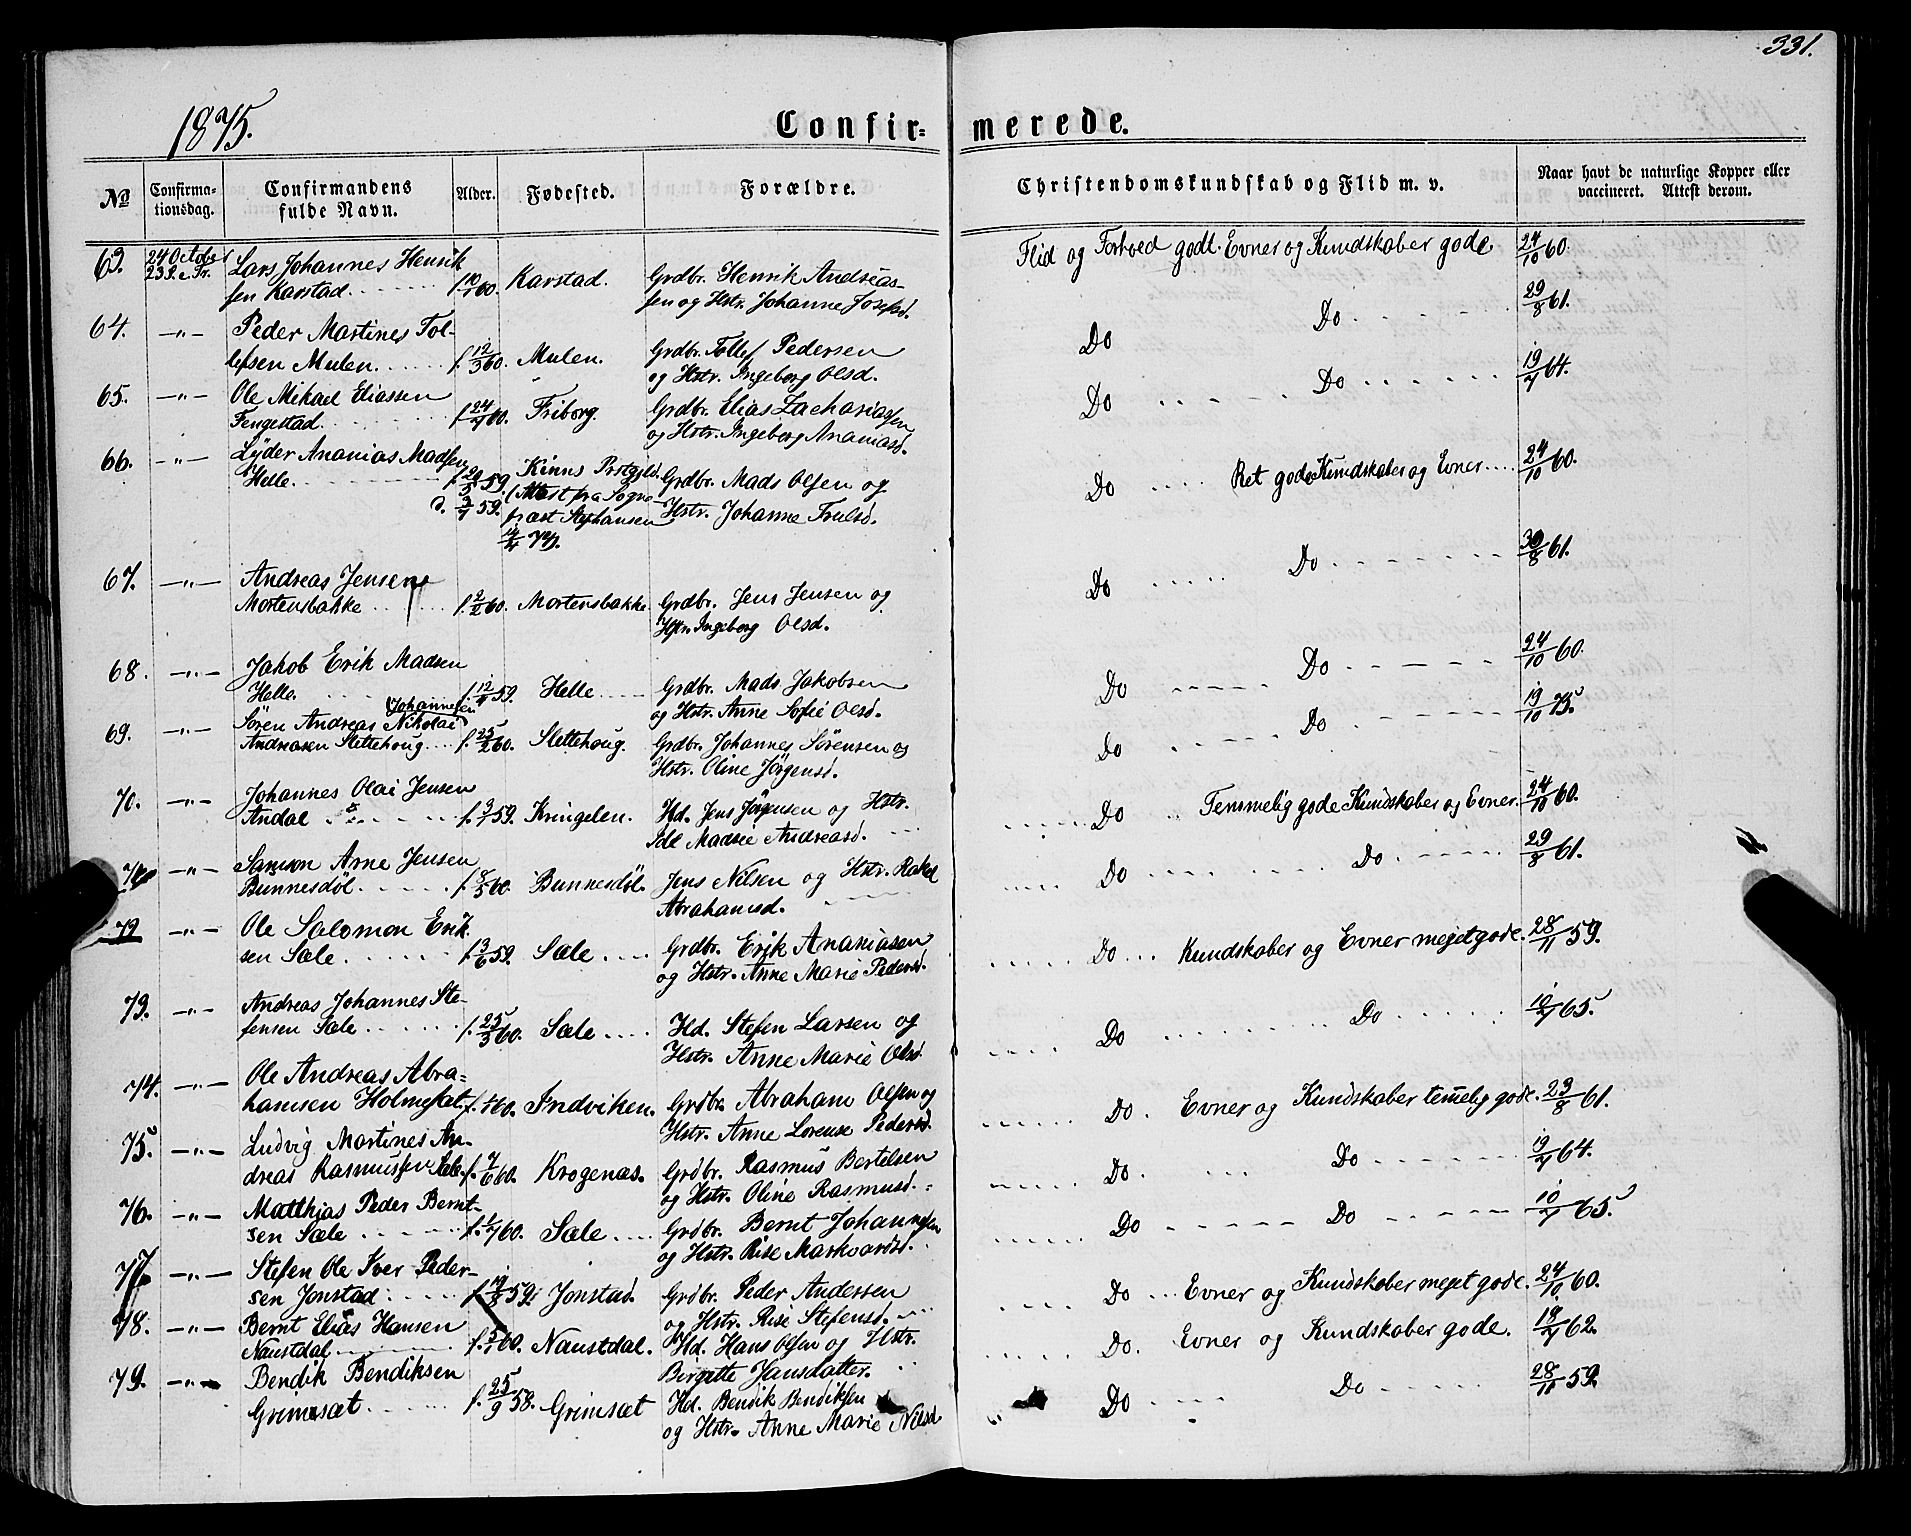 331.
1875.
Confir= merede.
No
Confirma-
tionsdag.
Confirmandens
fulde Navn.
Alder.
Fødested.
Forældre.
Christendomskundskab og Flid m. v.
Naar havt de naturlige Kopper eller
vaccineret. Attest derom.
63. 24 October Lars Johannes Henrik Flid og Forhold godt. Evner og Kundskaber gode. 24/10 60.
23 S. e Tr. sen Karstad. f. 10/1 60. Karstad. Grdbr. Henrik Andreas-
sen og Hstr. Johanne Josefsd.
64. -"- Peder Martines Tol- Do Do 29/8 61.
lefsen Mulen. f. 12/3 60. Mulen. Grdbr. Tollef Pedersen
og Hstr. Ingeborg Olsd.
65. -"- Ole Mikael Eliassen Do Do 19/7 64.
Fengestad. f. 24/7 60. Friborg. Grdbr. Elias Zachariassen
og Hstr. Ingeborg Ananiasd.
66. -"- Lyder Ananias Madsen Kinns Prstgjld. Do Ret gode Kundskaber og Evner 24/10 60.
Helle. 59. (Attest fra Sogne- Grdbr. Mads Olsen og
d. 3/7 59. præst Stephansen Hstr. Johanne Trulsd.
67. -"- Andreas Jensen Do Do 30/8 61.
Mortensbakke f. 2/2 60. Mortensbakke. Grdbr. Jens Jensen og
Hstr. Ingeborg Olsd.
68. -"- Jakob Erik Madsen Do Do 24/10 60.
Helle f. 12/7 59. Helle Grdbr. Mads Jakobsen
Johannesen og Hstr. Anne Sofie Olsd.
69. -"- Sören Andreas Nikolai Do Do 19/10 75.
Andreasen Slettehoug f. 25/2 60. Slettehoug. Grdbr. Johannes Sørensen og
Hstr. Oline Jørgensd.
70. -"- Johannes Olai Jensen Do Temmelig gode Kundskaber og Evner. 24/10 60.
Andal f. 3/7 59. Kringelen. Hd. Jens Jørgensen og Hstr.
Madsie Andreasd.
71 -"- Samson Arne Jensen Do Do 29/8 61.
Bunnesdøl. f. 8/5 60. Bunnesdøl. Jens Nilsen og Hstr. Rakel
Abrahamsd.
72 -"- Ole Salomon Erik Do Kundskaber og Evner meget gode. 28/11 59.
sen Sæle. f. 13/6 59. Sæle Grdbr. Erik Ananiasen
og Hstr. Anne Marie Pedersd.
73. -"- Andreas Johannes Ste- Do Do 10/7 65.
fensen Sæle f. 25/3 60. Sæle Hd. Stefen Larsen og
Hstr. Anne Marie Olsd.
74. -"- Ole Andreas Abra- Do. Evner og Kundskaber temelig gode. 23/8 61.
hamsen Holmesæt. 60. Indviken. Grdbr. Abraham Olsen og
Hstr. Anne Lorense Pedersd.
75. -"- Ludvig Martines An- Do Do 19/7 64.
dreas Rasmussen Sæle f. 7/6 60. Krogenæs. Grdbr. Rasmus Bertelsen
og Hstr. Oline Rasmusd.
76. -"- Matthias Peder Bernt- Do Do 10/7 65.
sen Sæle f. 1/7 60. Sæle Grdbr. Bernt Johannesen
og Hstr. Rise Markvardsd.
77 -"- Stefen Ole Iver Peder- Do Evner og Kundskaber meget gode. 24/10 60.
sen Jonstad f. 19/8 59. Jonstad. Grdbr. Peder Andersen
og Hstr. Rise Stefensd.
78. -"- Bernt Elias Hansen Do. Evner og Kundskaber gode. 19/7 62.
Naustdal f. 5/1 60. Naustdal. Hd. Hans Olsen og Hstr.
Birgitte Jansdatter.
79. -"- Bendik Bendiksen Do Do 28/11 59.
Grimesæt f. 25/9 58. Grimsæt Hd. Bendik Bendiksen
og Hstr. Anne Marie Nilsd